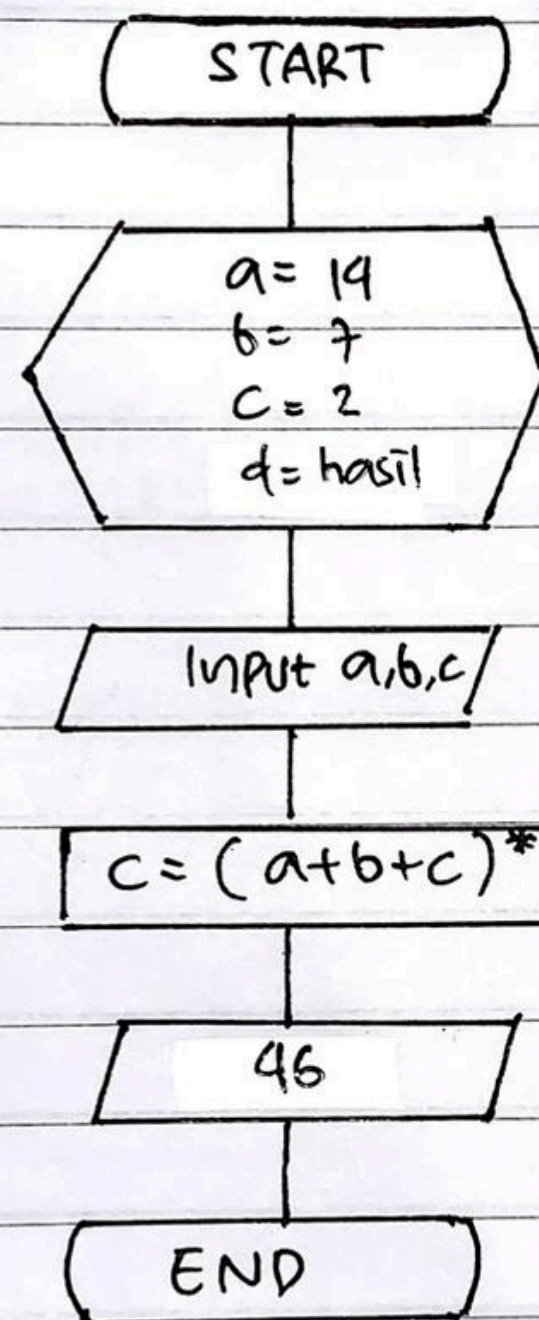 START
a = 14
b = 7
c = 2
d = hasil
Input a,b,c
c = (a+b+c)*
46
END